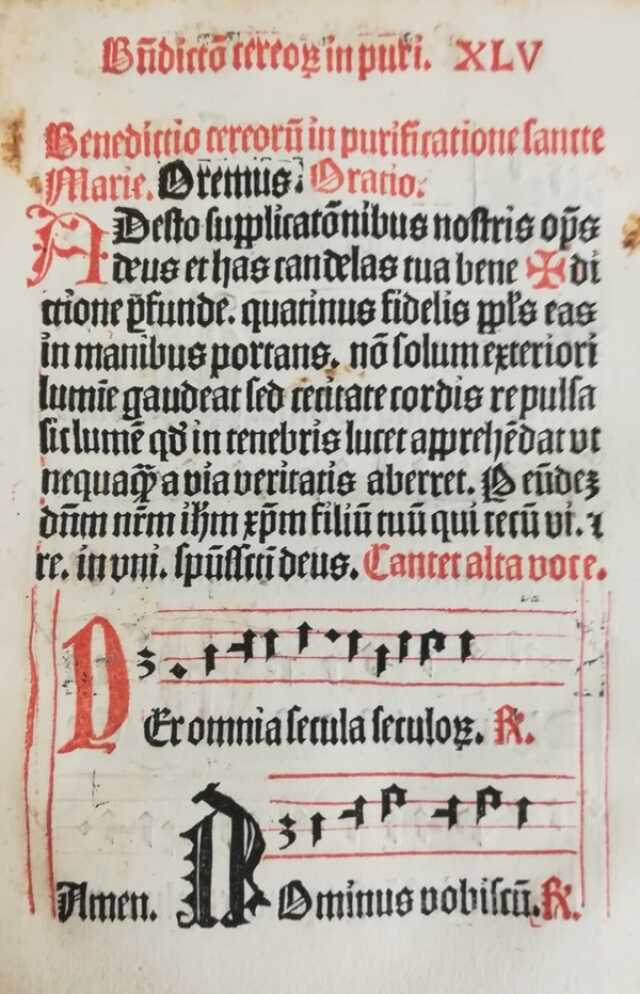 Bn̄dictō cereoꝝ in puri. XLV
Benedictio cereorū in purificatione sancte
Marie. Oremus. Oratio.
ADesto supplicatōnibus nostris op̄s
deus et has candelas tua bene ✠ di
ctione ꝑfunde. quatinus fidelis ppl̓s eas
in manibus portans. nō solum exteriori
lumīe gaudeat sed cecitate cordis repulsa
sit lumē qd̄ in tenebris lucet apprehēdat vt
nequaq̄ȝ a via veritatis aberret. P eūdeȝ
dn̄m nr̄m ih̄m xp̄m filiū tuū qui tecū vi. ⁊
re. in vni. spūssct̄i deus. Cantet alta voce.
PEr omnia secula seculoꝝ. ℟.
Amen. DOminus vobiscū. ℟.